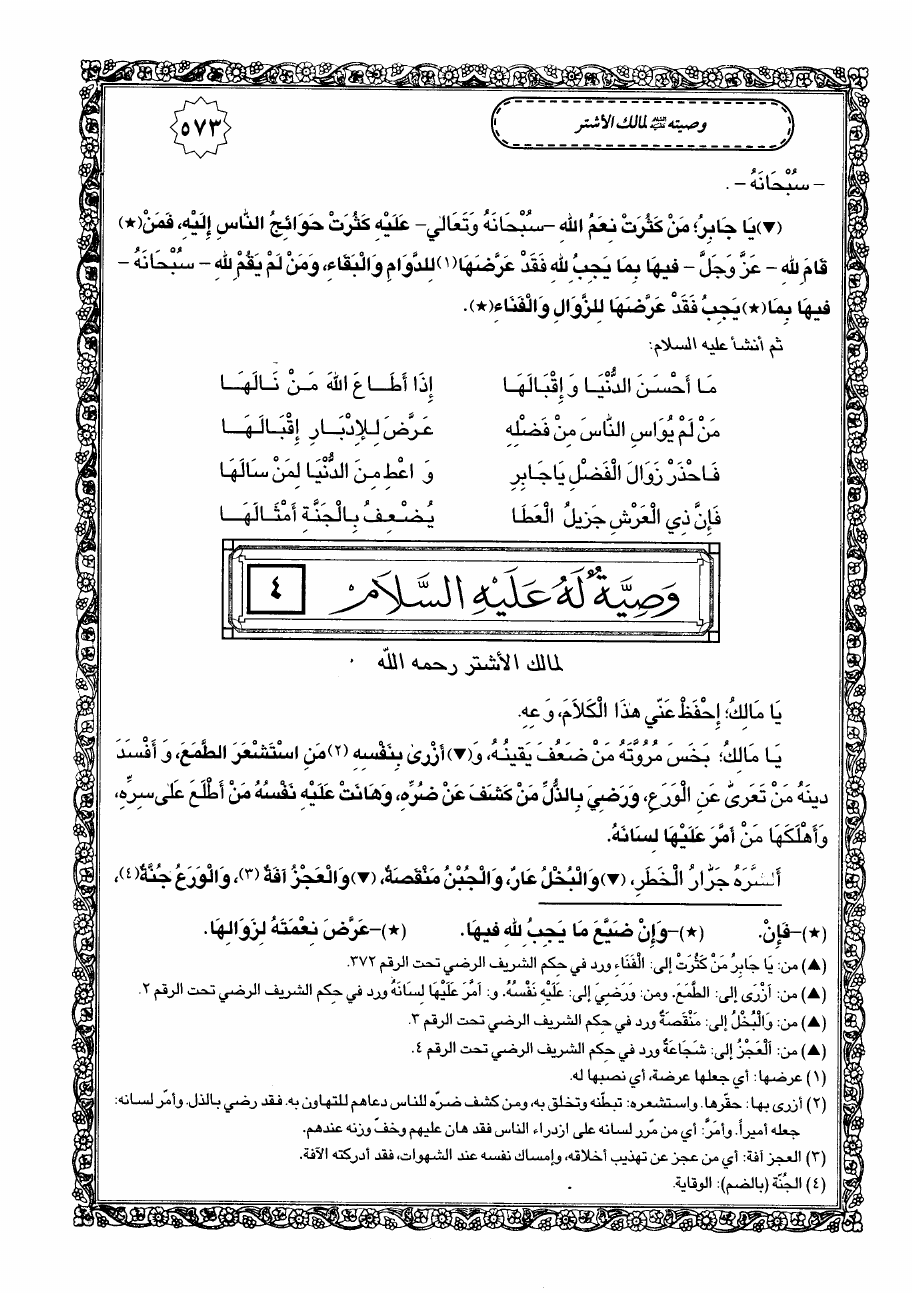 وصيته عليه السلام لمالك الأشتر
٥٧٣
– سُبْحَانَهُ – .
(▼)يَا جَابِرُ؛ مَنْ كَثُرَتْ نِعَمُ اللهِ –سُبْحَانَهُ وَتَعَالىٰ– عَلَيْهِ كَثُرَتْ حَوَائِجُ النَّاسِ إِلَيْهِ، فَمَنْ(★)
قَامَ لِلهِ – عَزَّ وَجَلَّ – فِيهَا بِمَا يَجِبُ لِلهِ فَقَدْ عَرَّضَهَا(١)لِلدَّوَامِ وَالْبَقَاءِ، وَمَنْ لَمْ يَقُمْ لِلهِ – سُبْحَانَهُ –
فِيهَا بِمَا(★)يَجِبُ فَقَدْ عَرَّضَهَا لِلزَّوَالِ وَالْفَنَاءِ(★).
ثم أنشأ عليه السلام:
مَا أَحْسَنَ الدُّنْيَا وَ إِقْبَالَهَا إِذَا أَطَاعَ اللهَ مَنْ نَالَهَا
مَنْ لَمْ يُوَاسِ النَّاسَ مِنْ فَضْلِهِ عَرَّضَ لِلإِدْبَارِ إِقْبَالَهَا
فَاحْذَرْ زَوَالَ الْفَضْلِ يَاجَابِرِ وَ اعْطِ مِنَ الدُّنْيَا لِمَنْ سَالَهَا
فَإِنَّ ذِي الْعَرْشِ جَزِيلُ الْعَطَا يُضْعِفُ بِالْجَنَّةِ أَمْثَالَهَا
وَصِيَّةٌ لَهُ عَلَيْهِ السَّلَامُ
٤
لمالك الأشتر رحمه اللّه
يَا مَالِكُ؛ إِحْفَظْ عَنّي هذَا الْكَلَامَ، وَ عِهِ.
يَا مَالِكُ؛ بَخَسَ مُرُوَّتَهُ مَنْ ضَعُفَ يَقينُهُ، وَ(▼)أَزْرىٰ بِنَفْسِهِ (٢)مَنِ اسْتَشْعَرَ الطَّمَعَ، وَ أَفْسَدَ
دينَهُ مَنْ تَعَرىٰ عَنِ الْوَرَعِ، وَرَضِيَ بِالذُّلِّ مَنْ كَشَفَ عَنْ ضُرِّهِ، وَهَانَتْ عَلَيْهِ نَفْسُهُ مَنْ أَطْلَعَ عَلىٰ سِرِّهِ،
وَأَهْلَكَهَا مَنْ أَمَّرَ عَلَيْهَا لِسَانَهُ.
اَلشَّرَهُ جَزَّارُ الْخَطَرِ، (▼)وَالْبُخْلُ عَارٌ، وَالْجُبْنُ مَنْقَصَةٌ، (▼)وَالْعَجْزُ آفَةٌ (٣)، وَالْوَرَعُ جُنَّةٌ(٤)،
(★)–فَإِنْ. (★)–وَإِنْ ضَيَّعَ مَا يَجِبُ لِلهِ فِيهَا. (★)–عَرَّضَ نِعْمَتَهُ لِزَوَالِهَا.
(▲) من: يَا جَابِرُ مَنْ كَثُرَتْ إلى: الْفَنَاءِ ورد في حكم الشريف الرضي تحت الرقم ٣٧٢.
(▲) من: أَزْرَى إلى: الطَّمَعَ. ومن: وَرَضِيَ إلى: عَلَيْهِ نَفْسُهُ. و: أَمَّرَ عَلَيْهَا لِسَانَهُ ورد في حكم الشريف الرضي تحت الرقم ٢.
(▲) من: وَالْبُخْلُ إلى: مَنْقَصَةٌ ورد في حكم الشريف الرضي تحت الرقم ٣.
(▲) من: اَلْعَجْزُ إلى: شَجَاعَةٌ ورد في حكم الشريف الرضي تحت الرقم ٤.
(١) عرضها: أي جعلها عرضة، أي نصبها له.
(٢) أزرى بها: حقّرها. واستشعره: تبطّنه وتخلق به، ومن كشف ضرّه للناس دعاهم للتهاون به. فقد رضي بالذل. وأمّر لسانه:
جعله أميراً. وأمَرَّ: أي من مّرر لسانه على ازدراء الناس فقد هان عليهم وخفّ وزنه عندهم.
(٣) العجز آفة: أي من عجز عن تهذيب أخلاقه، وإمساك نفسه عند الشهوات، فقد أدركته الآفة.
(٤) الجُنّة (بالضم): الوقاية.